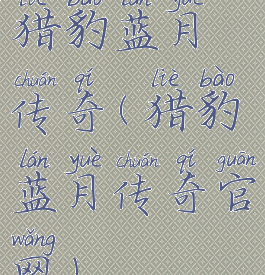 liè bào lán yuè
猎豹蓝月
chuán qí liè bào
传奇(猎豹
lán yuè chuán qí guān
蓝月传奇官
wǎng
网)